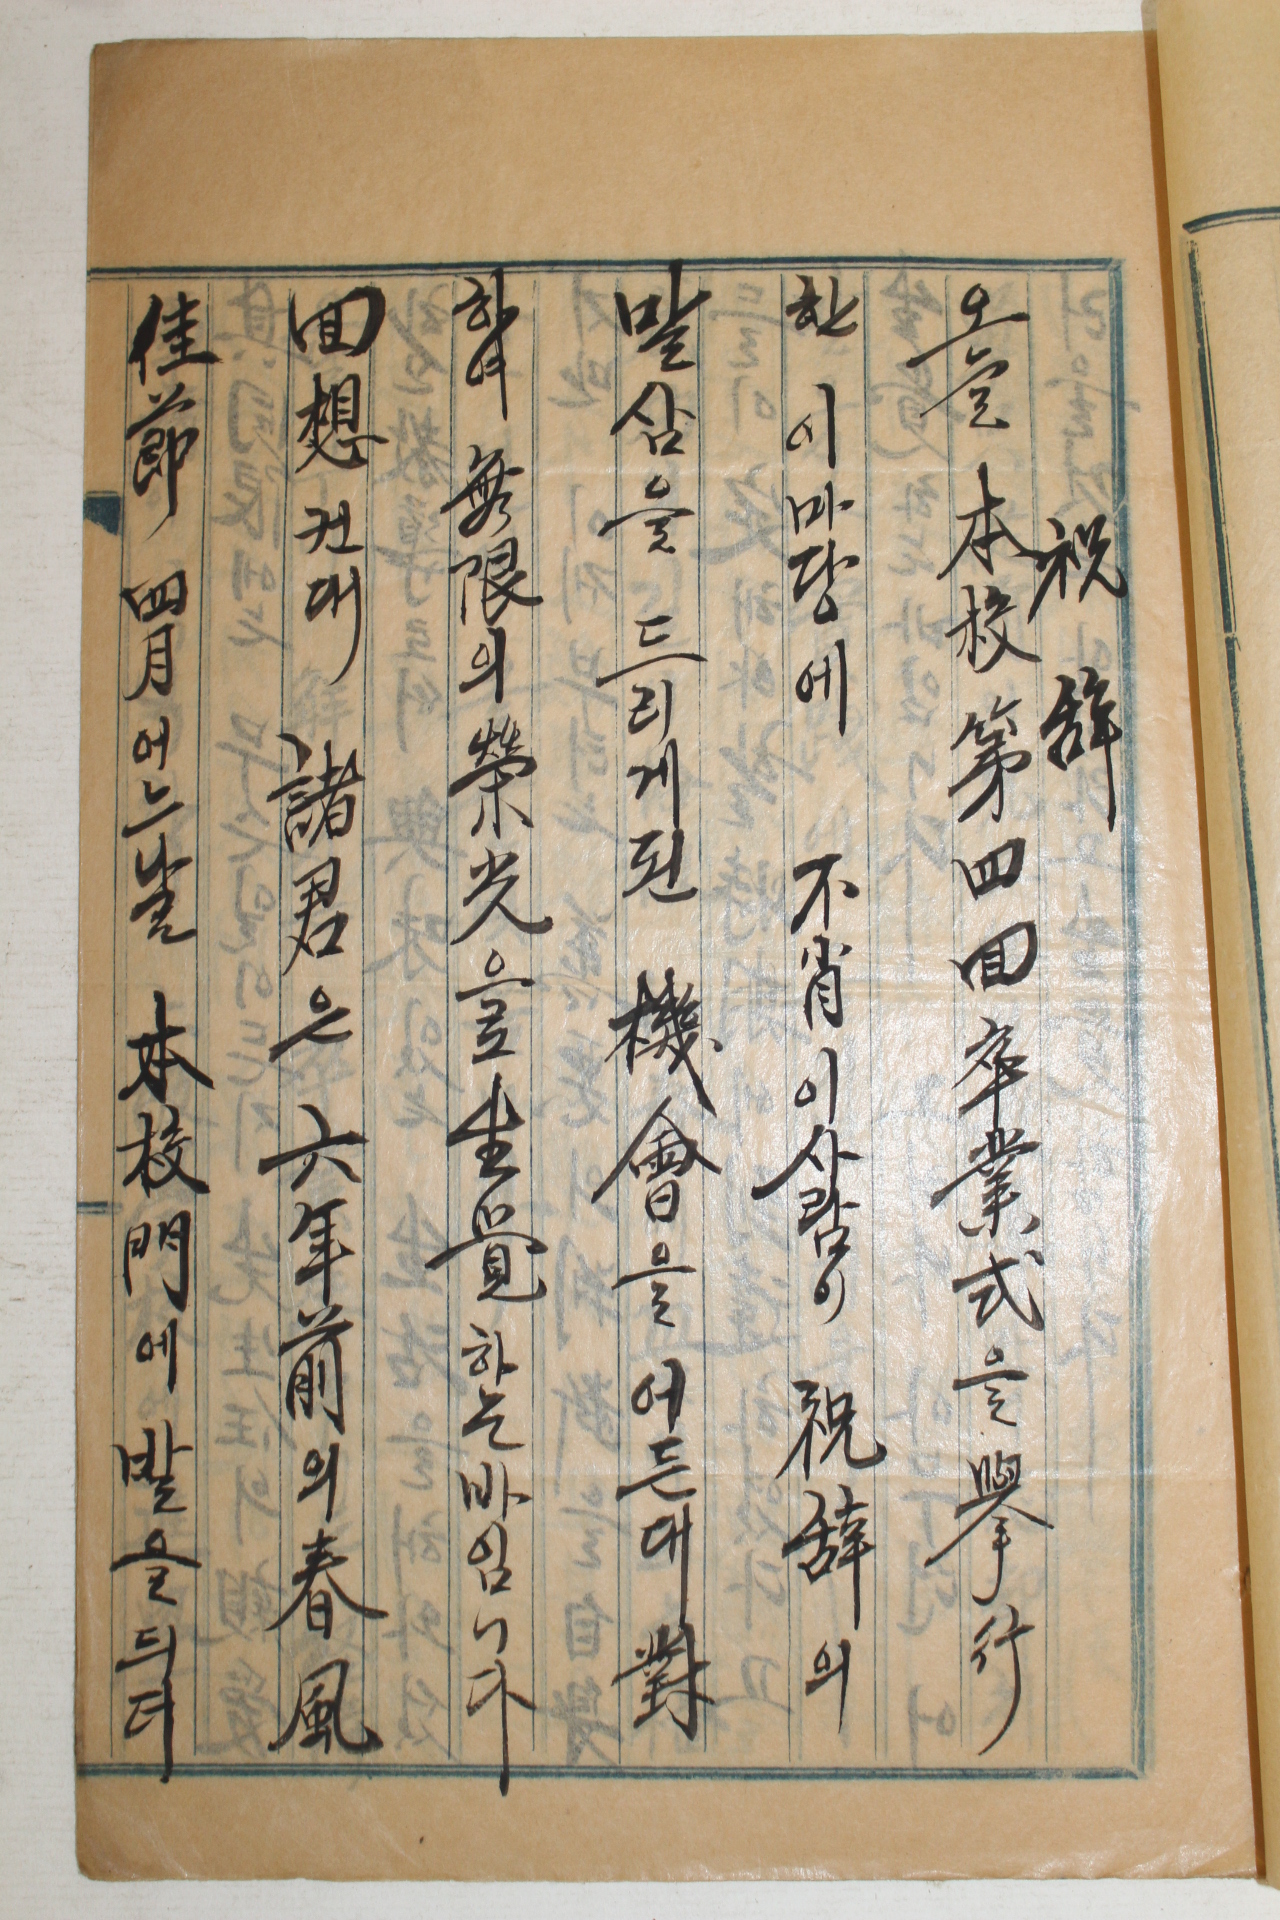 祝辞
오늘 本校第四回卒業式을 擧行
한 이마당에 不肖 이사람이 祝辞의
말삼을 드리게된 機會를 어든데 對
하여 無限의 榮光으로 生覺하는바임니다
回想컨대 諸君은 六年前의 春風
佳節 四月 어느날 本校門에 발을 듸더